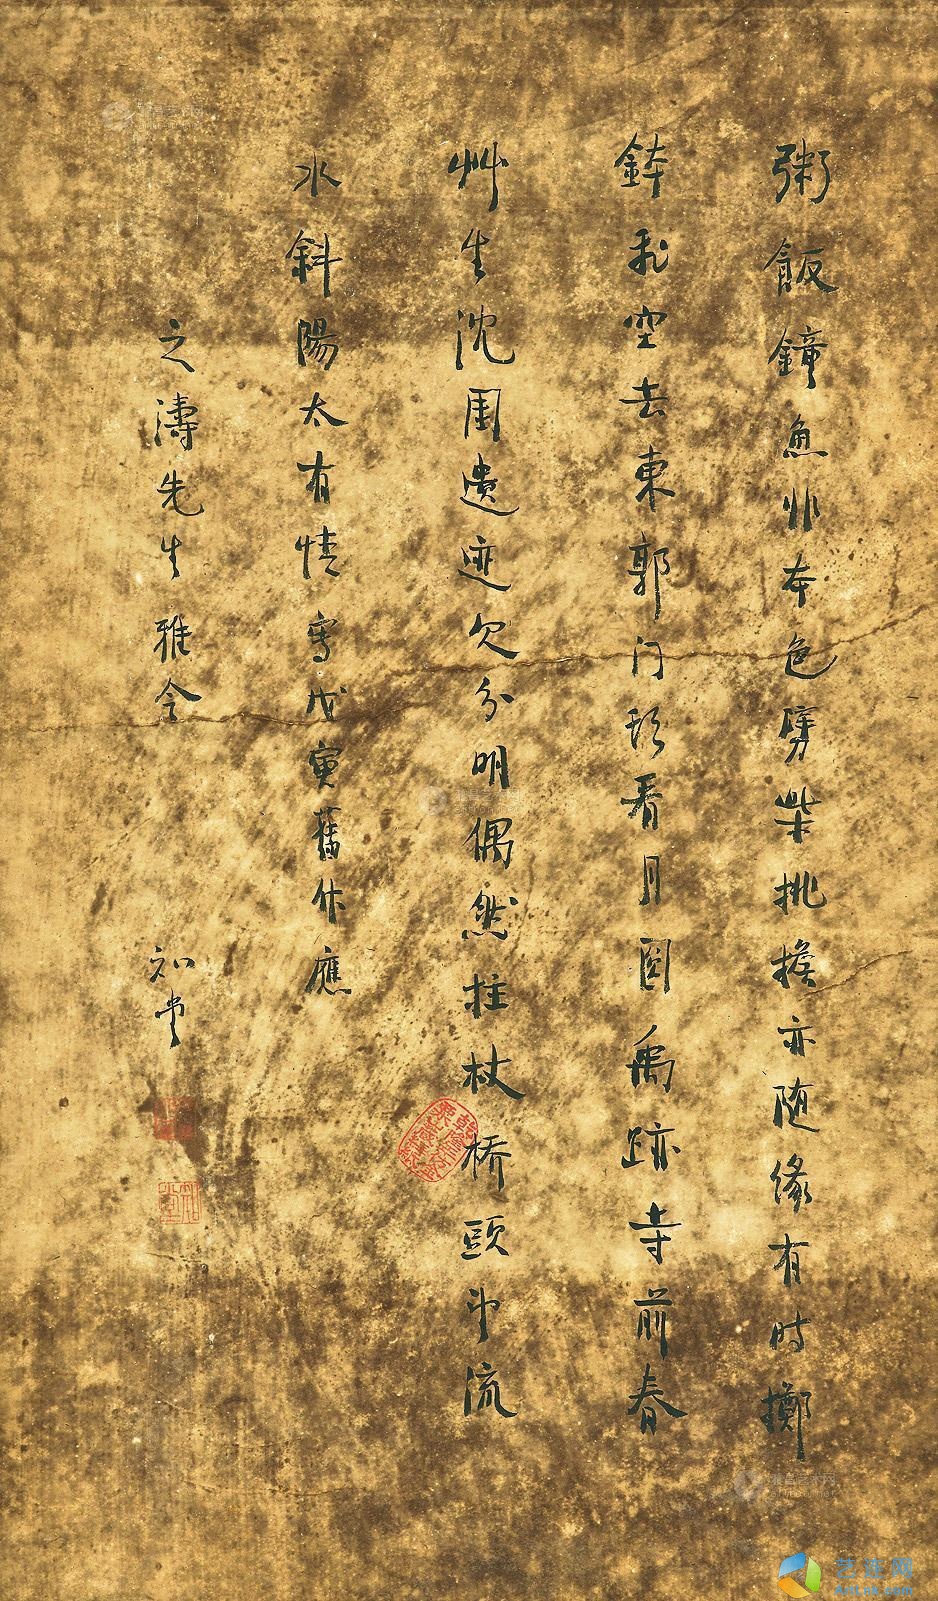 粥飯鐘魚非本色劈柴挑擔亦随緣有時擲
鉢飛空去東郭門頭看月圓禹跡寺前春
艸生沈園遺迹欠分明偶然拄杖橋頭望流
水斜陽太有情寫戊寅舊作應
之濤先生雅令
知堂
艺连网